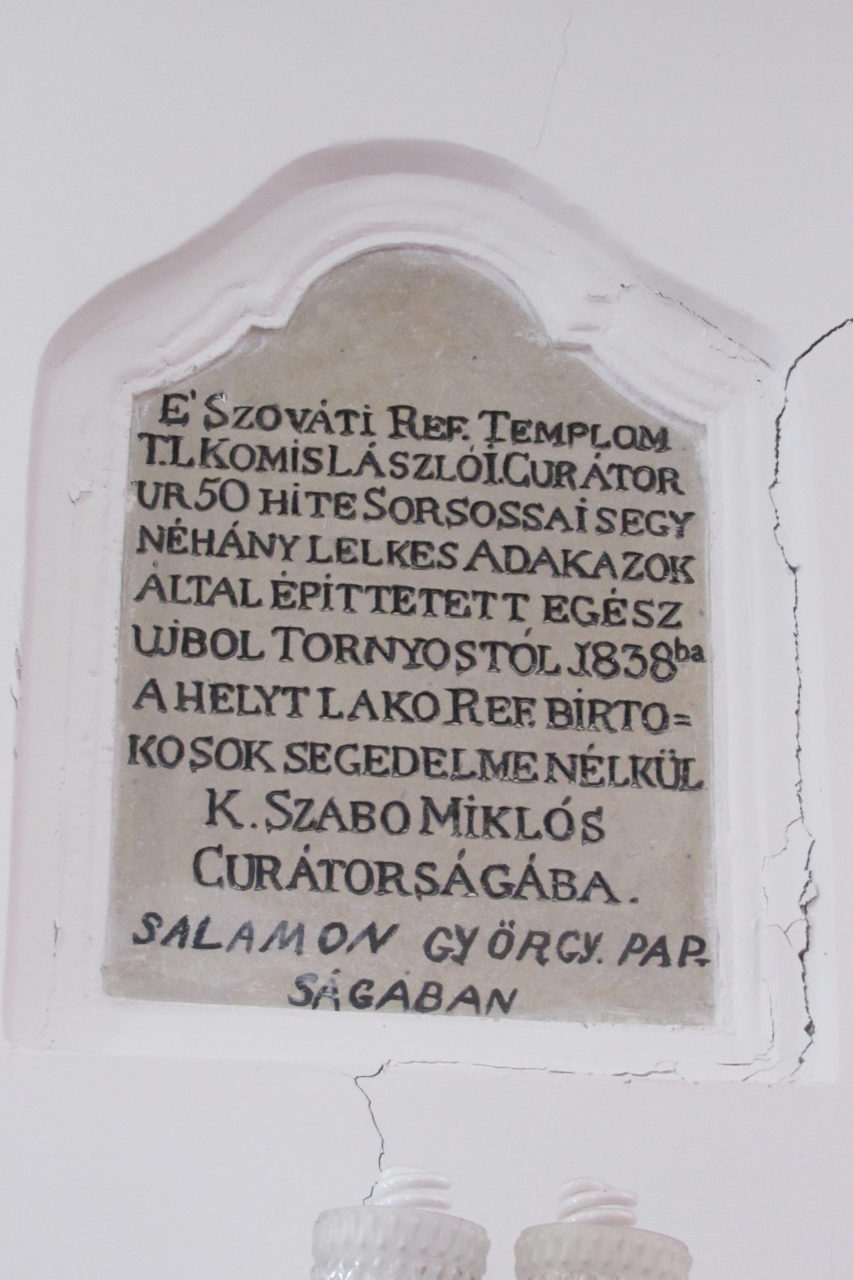 E' SZOVÁTI REF. TEMPLOM
T.I. KOMIS LÁSZLÓ I. CURÁTOR
UR 50 HITE SORSOSSAI S EGY
NÉHÁNY LELKES ADAKAZOK
ÁLTAL ÉPITTETETT EGÉSZ
UJBOL TORNYOSTÓL 1838ba
A HELYT LAKO REF. BIRTO=
KOSOK SEGEDELME NÉLKÜL
K. SZABO MIKLÓS
CURÁTORSÁGÁBA.
SALAMON GYÖRGY. PAP-
SÁGÁBAN